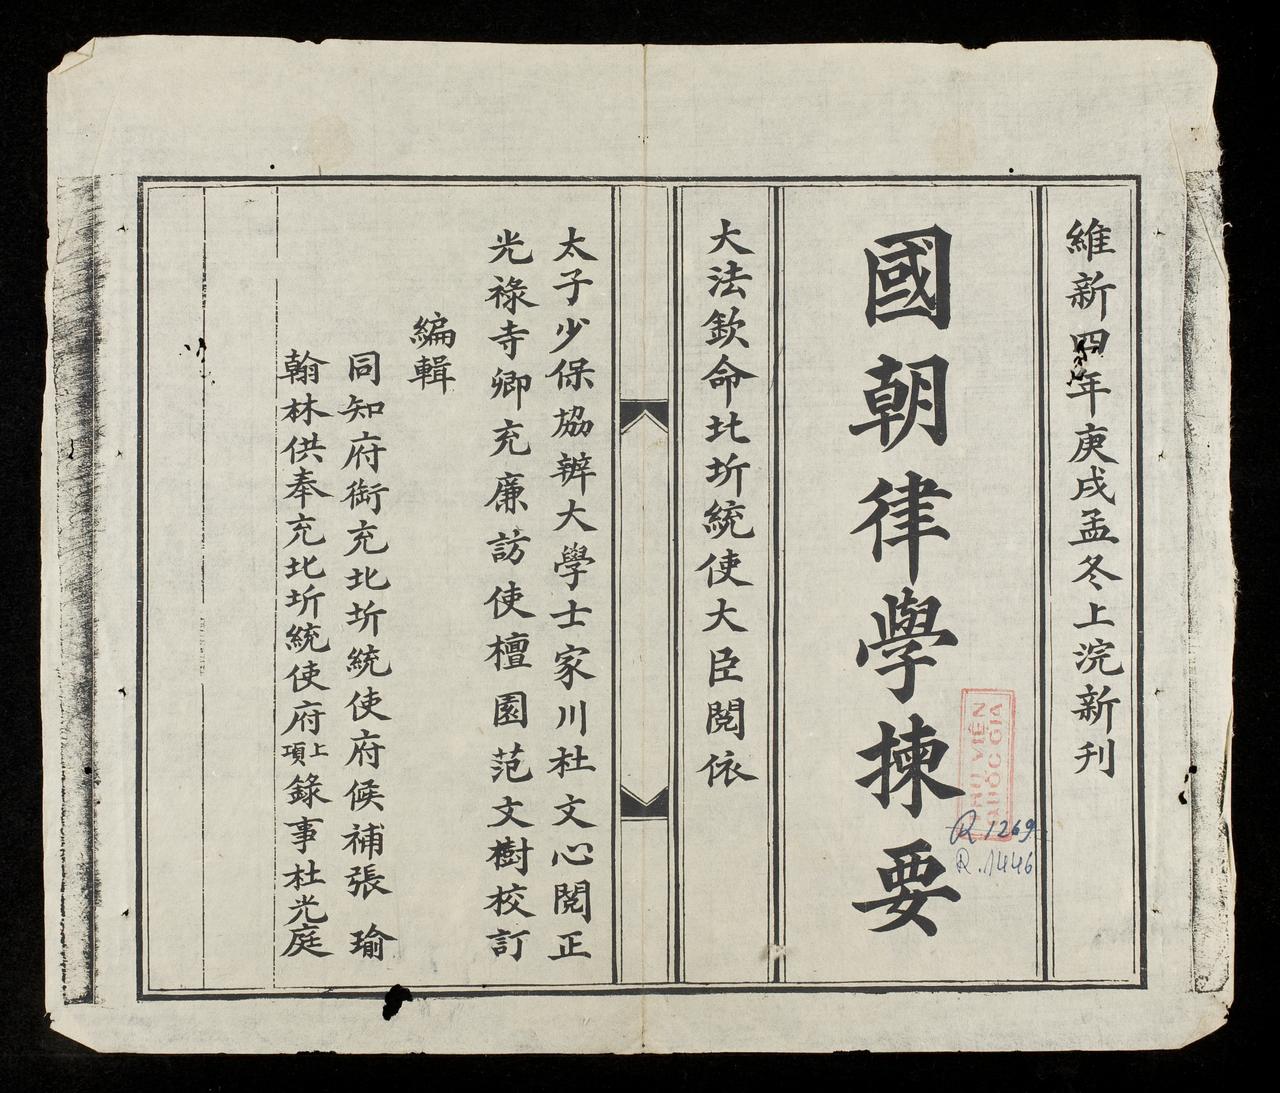 維新四年庚戌孟冬上浣新刊
國朝律學揀要
THƯ VIỆN
QUỐC GIA
R 1269
R.1446
大法欽命北圻統使大臣閱依
太子少保協辦大學士家川杜文心閱正
光祿寺卿充廉訪使檀園范文樹校訂
編輯
同知府銜充北圻統使府候補張瑜
翰林供奉充北圻統使府上項錄事杜光庭